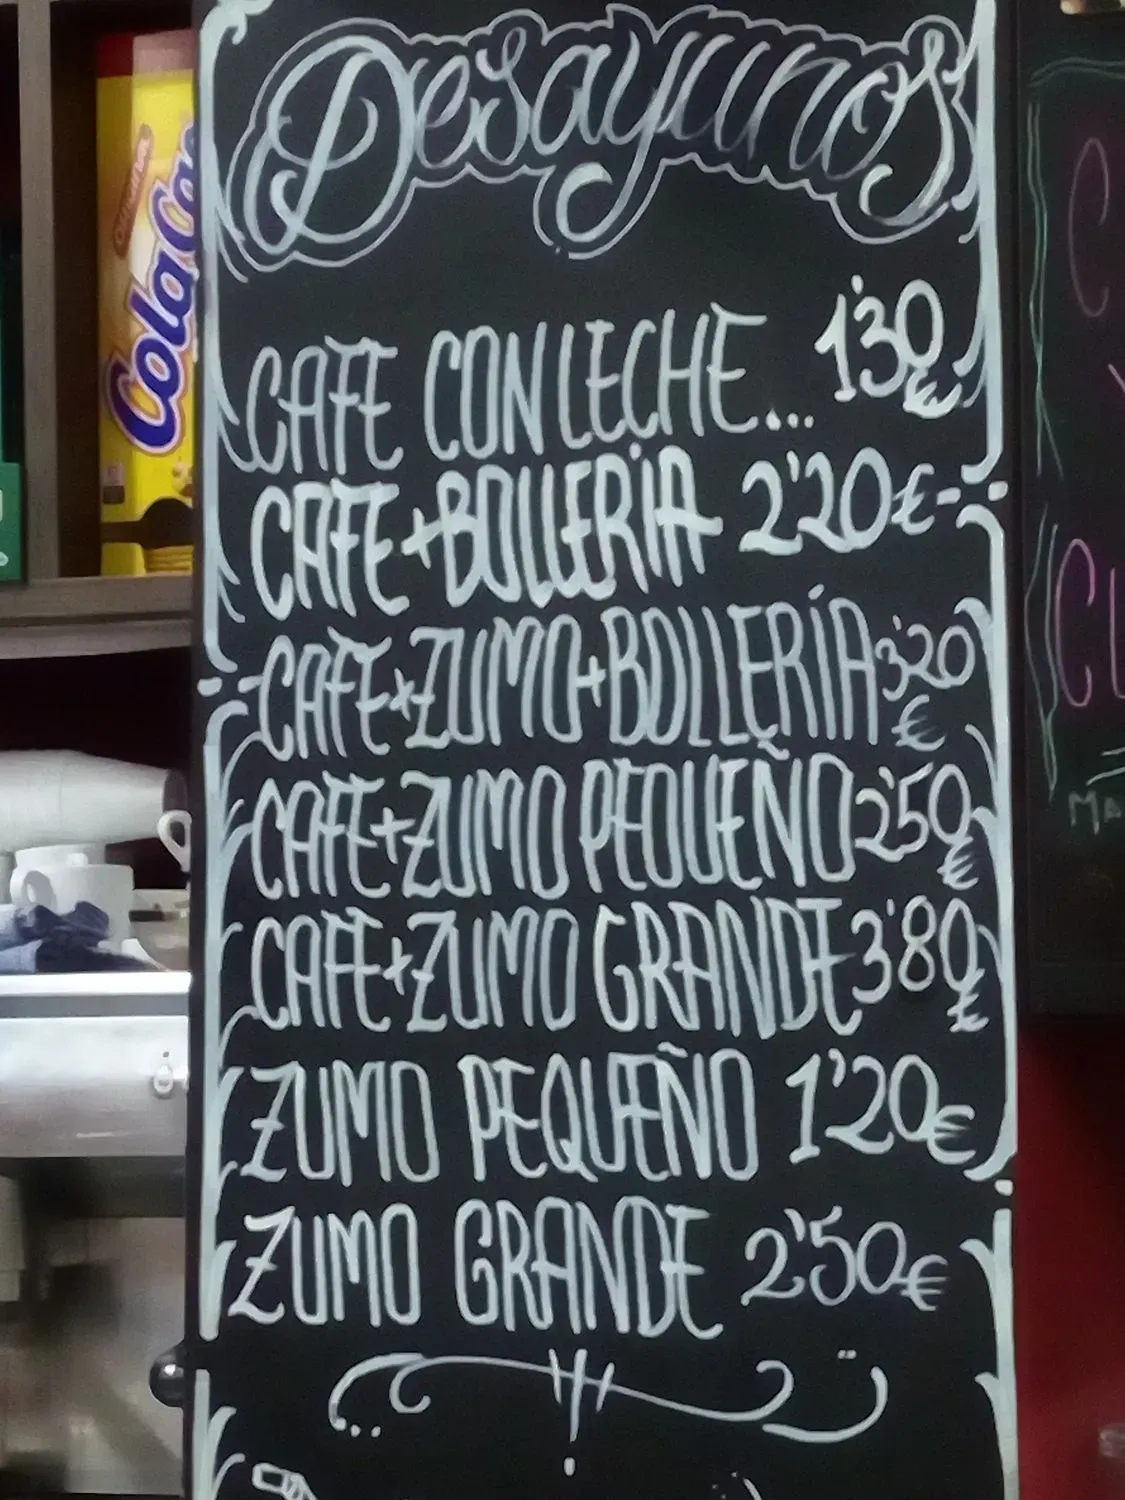 Desayunos
CAFE CON LECHE... 1'30€
CAFE+BOLLERIA 2'20€
CAFE+ZUMO+BOLLERÍA 3'20€
CAFE+ZUMO PEQUEÑO 2'50€
CAFE+ZUMO GRANDE 3'80€
ZUMO PEQUEÑO 1'20€
ZUMO GRANDE 2'50€
ColaCao